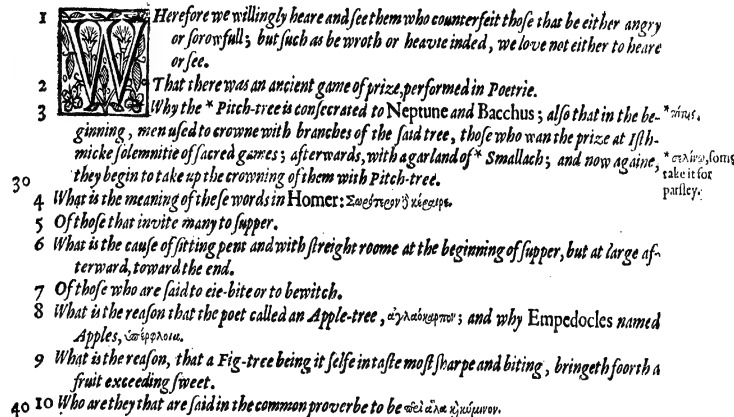 1 WHerefore we willingly heare and ſee them who counterfeit thoſe that be either angry
or ſorowfull; but ſuch as be wroth or heavie indeed, we love not either to heare
or ſee.
2 That there was an ancient game of prize, performed in Poetrie.
3 Why the * Pitch-tree is conſecrated to Neptune and Bacchus; alſo that in the be- * πίτυς.
ginning, men uſed to crowne with branches of the ſaid tree, thoſe who wan the prize at Iſth-
micke ſolemnitie of ſacred games; afterwards, with a garland of * Smallach; and now againe, * σελίνῳ, ſome
take it for
30 they begin to take up the crowning of them with Pitch-tree.
parſley.
4 What is the meaning of theſe words in Homer: Ζωρότερον ἢ κέραιρε.
5 Of thoſe that invite many to ſupper.
6 What is the cauſe of ſitting pent and with ſtreight roome at the beginning of ſupper, but at large af-
terward, toward the end.
7 Of thoſe who are ſaid to eie-bite or to bewitch.
8 What is the reaſon that the poet called an Apple-tree, ἀγλαόκαρπον; and why Empedocles named
Apples, ὑπέρφλοια.
9 What is the reaſon, that a Fig-tree being it ſelfe in taſte moſt ſharpe and biting, bringeth foorth a
fruit exceeding ſweet.
40 10 Who are they that are ſaid in the common proverbe to be περὶ ἅλα κὶ κύμινον.